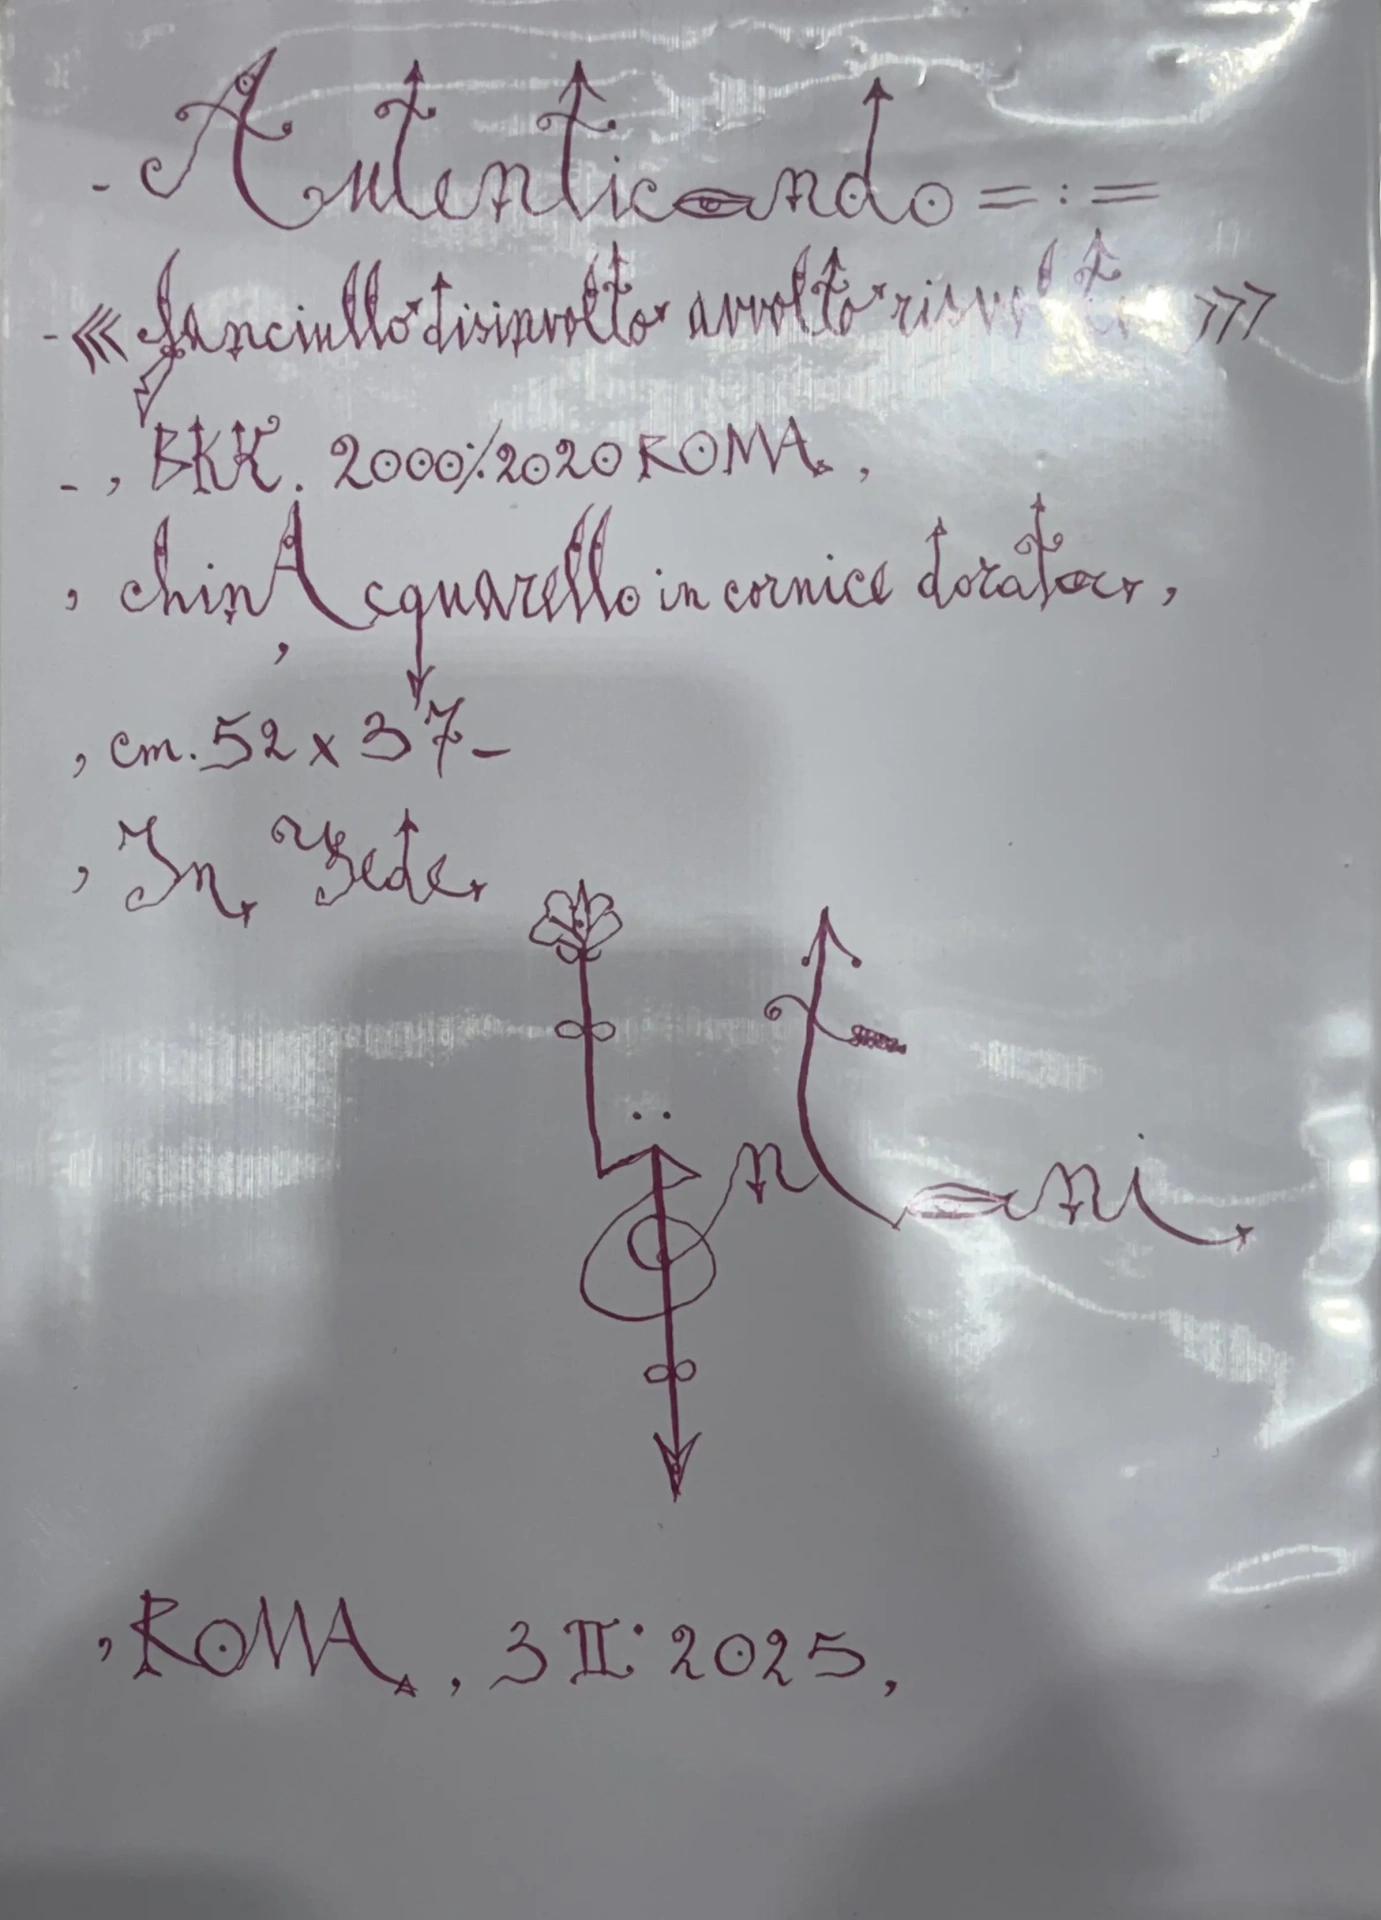 - Autenticando =:=
- <<< fanciullo disinvolto avvolto risvolto >>>
-, BKK. 2000%2020 ROMA,
, chinAcquarello in cornice dorata,
, cm. 52 x 37-
, In Fede
ï ntani
, ROMA, 3 II· 2025,